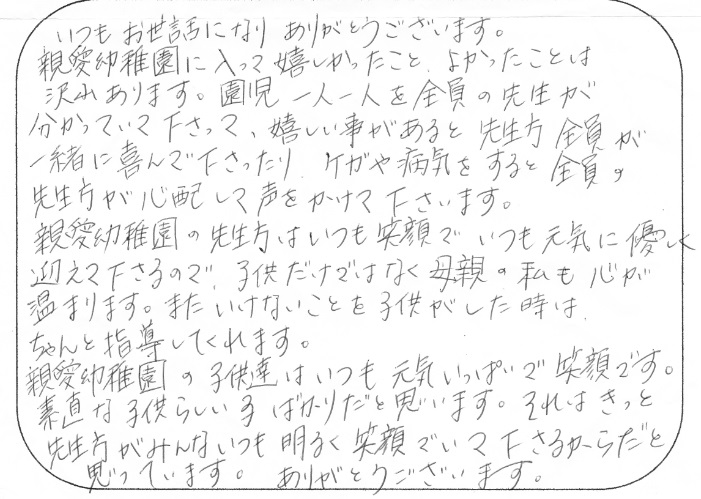 いつもお世話になり ありがとうございます。
親愛幼稚園に入って嬉しかったこと、よかったことは
沢山あります。園児 一人一人を全員の先生が
分かっていて下さって、嬉しい事があると 先生方 全員が
一緒に喜んで下さったり、ケガや病気をすると 全員の
先生方が心配して声をかけて下さいます。
親愛幼稚園の先生方はいつも笑顔で いつも元気に優しく
迎えて下さるので、子供だけではなく母親の私も心が
温まります。また いけないことを子供がした時は、
ちゃんと指導してくれます。
親愛幼稚園の子供達はいつも元気いっぱいで笑顔です。
素直な子供らしい子ばかりだと思います。それはきっと
先生方がみんないつも明るく笑顔でいて下さるからだと
思っています。 ありがとうございます。